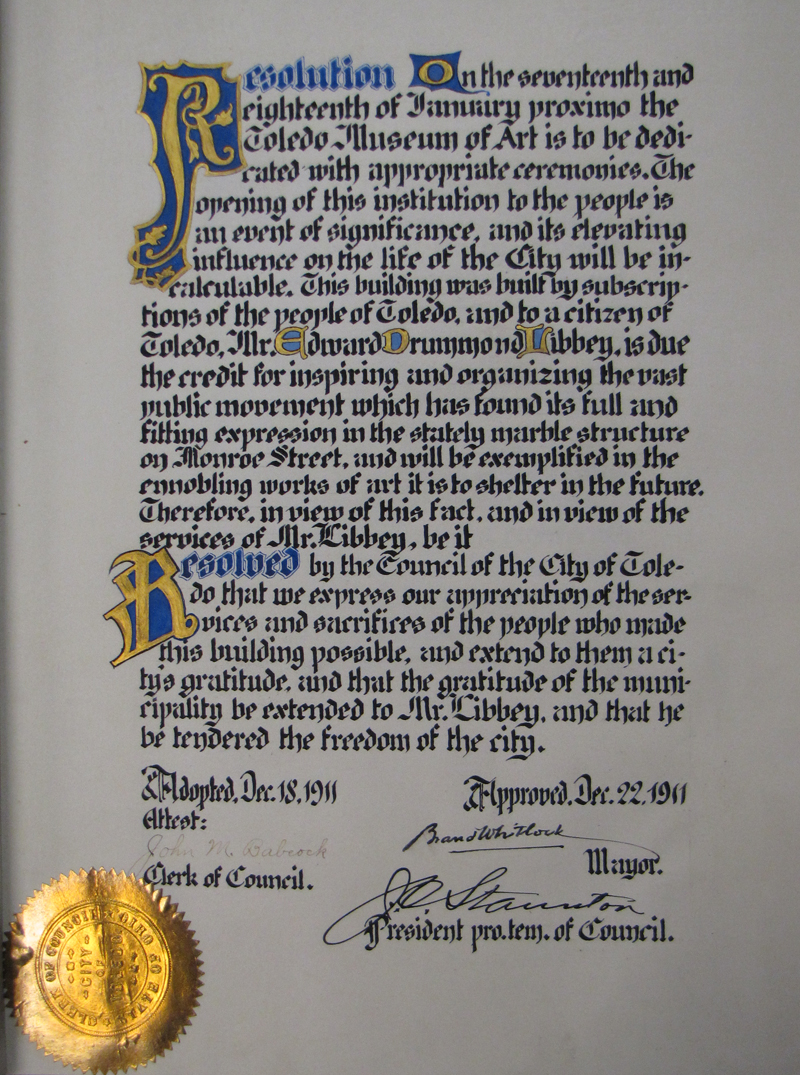 Resolution On the seventeenth and
eighteenth of January proximo the
Toledo Museum of Art is to be dedi-
cated with appropriate ceremonies. The
opening of this institution to the people is
an event of significance, and its elevating
influence on the life of the City will be in-
calculable. This building was built by subscrip-
tions of the people of Toledo, and to a citizen of
Toledo, Mr. Edward Drummond Libbey, is due
the credit for inspiring and organizing the vast
public movement which has found its full and
fitting expression in the stately marble structure
on Monroe Street, and will be exemplified in the
ennobling works of art it is to shelter in the future.
Therefore, in view of this fact, and in view of the
services of Mr. Libbey, be it
Resolved by the Council of the City of Tole-
do that we express our appreciation of the ser-
vices and sacrifices of the people who made
this building possible, and extend to them a ci-
ty's gratitude, and that the gratitude of the muni-
cipality be extended to Mr. Libbey, and that he
be tendered the freedom of the city.
Adopted, Dec. 18, 1911
Approved, Dec. 22, 1911
Attest:
John M. Babcock
Brand Whitlock
Clerk of Council.
Mayor.
J. O. Staunton
President pro. tem. of Council.
CLERK OF COUNCIL
STATE OF OHIO
CITY
OF
TOLEDO